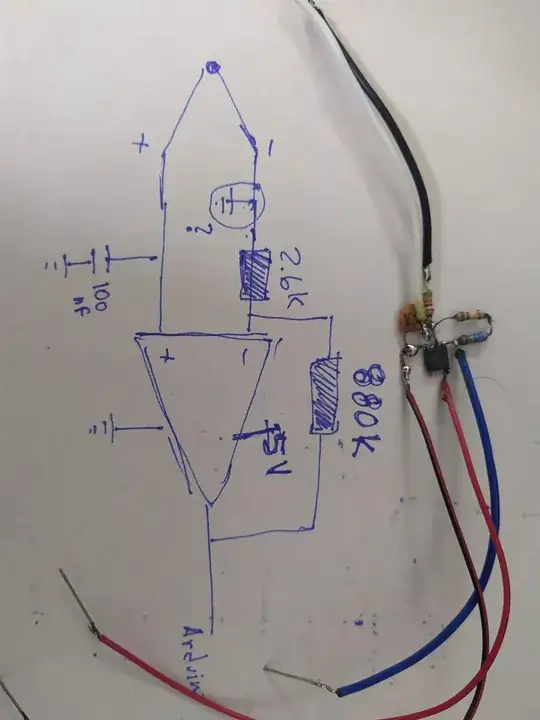 + -
?
2.6K
100
nf
+ -
880K
5V
Arduin